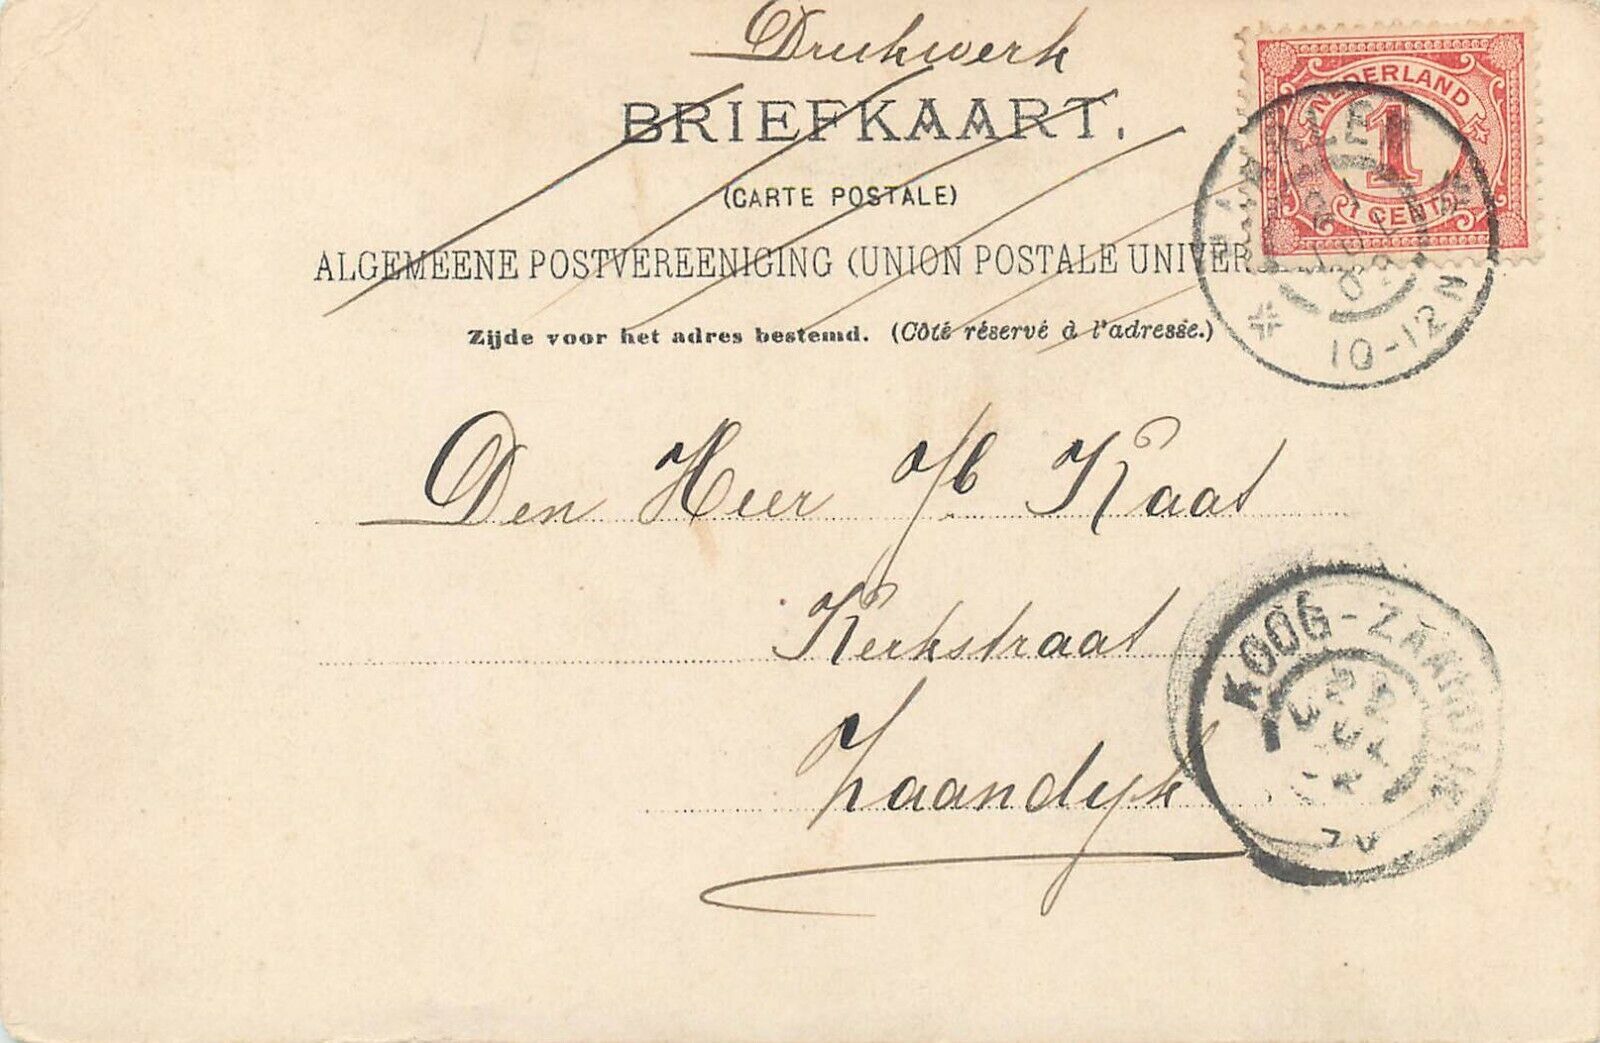 Drukwerk
BRIEFKAART.
(CARTE POSTALE)
ALGEMEENE POSTVEREENIGING (UNION POSTALE UNIVER
Zijde voor het adres bestemd. (Côté réservé à l'adresse.)
NEDERLAND
1
1 CENT
10-12N
Den Heer Kaat
Kerkstraat
Zaandyk
KOOG-ZAANDIJK